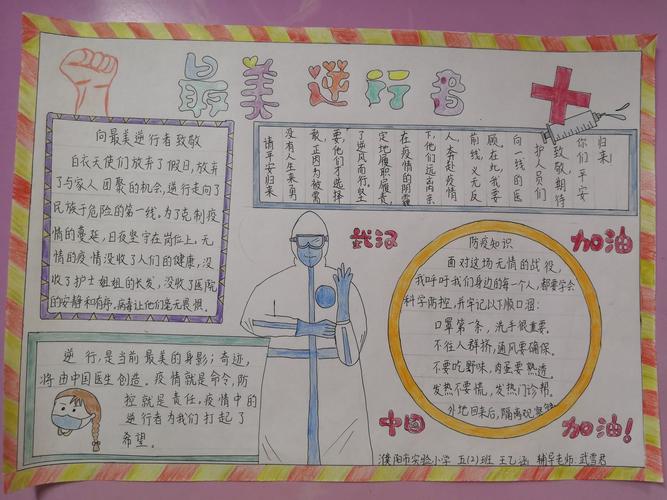 最美逆行者
向最美逆行者致敬
白衣天使们放弃了假日,放弃
了与家人团聚的机会,逆行走向了
民族于危险的第一线。为了克制疫
情的蔓延,日夜坚守在岗位上,无
情的疫情没收了人们的健康,没
收了护士姐姐的长发,没收了医院
的安静和有序,病毒让他们毫无畏惧。
请平安归来
没有人生来勇
敢,正因为被需
要,他们才选择
了逆风而行。坚
定地履职履责
在疫情的阴霾
下,他们远离亲
人,奔赴疫情
前线,义无反
顾。在此,我要
向一线的医
护人员们
致敬,期待
你们平安
归来!
武汉
加油
防疫知识
面对这场无情的战役,
我呼吁我们身边的每一个人,都要学会
科学防控,并牢记以下顺口溜:
口罩第一条,洗手很重要。
不往人群挤,通风要确保。
不要吃野味,肉蛋要熟透。
发热不要慌,发热门诊帮。
外地回来后,隔离观察
逆行,是当前最美的身影;奇迹,
将由中国医生创造。疫情就是命令,防
控就是责任,疫情中的
逆行者为我们打起了
希望。
中国
加油!
濮阳市实验小学 五(2)班 王乙涵 辅导老师:武雪君